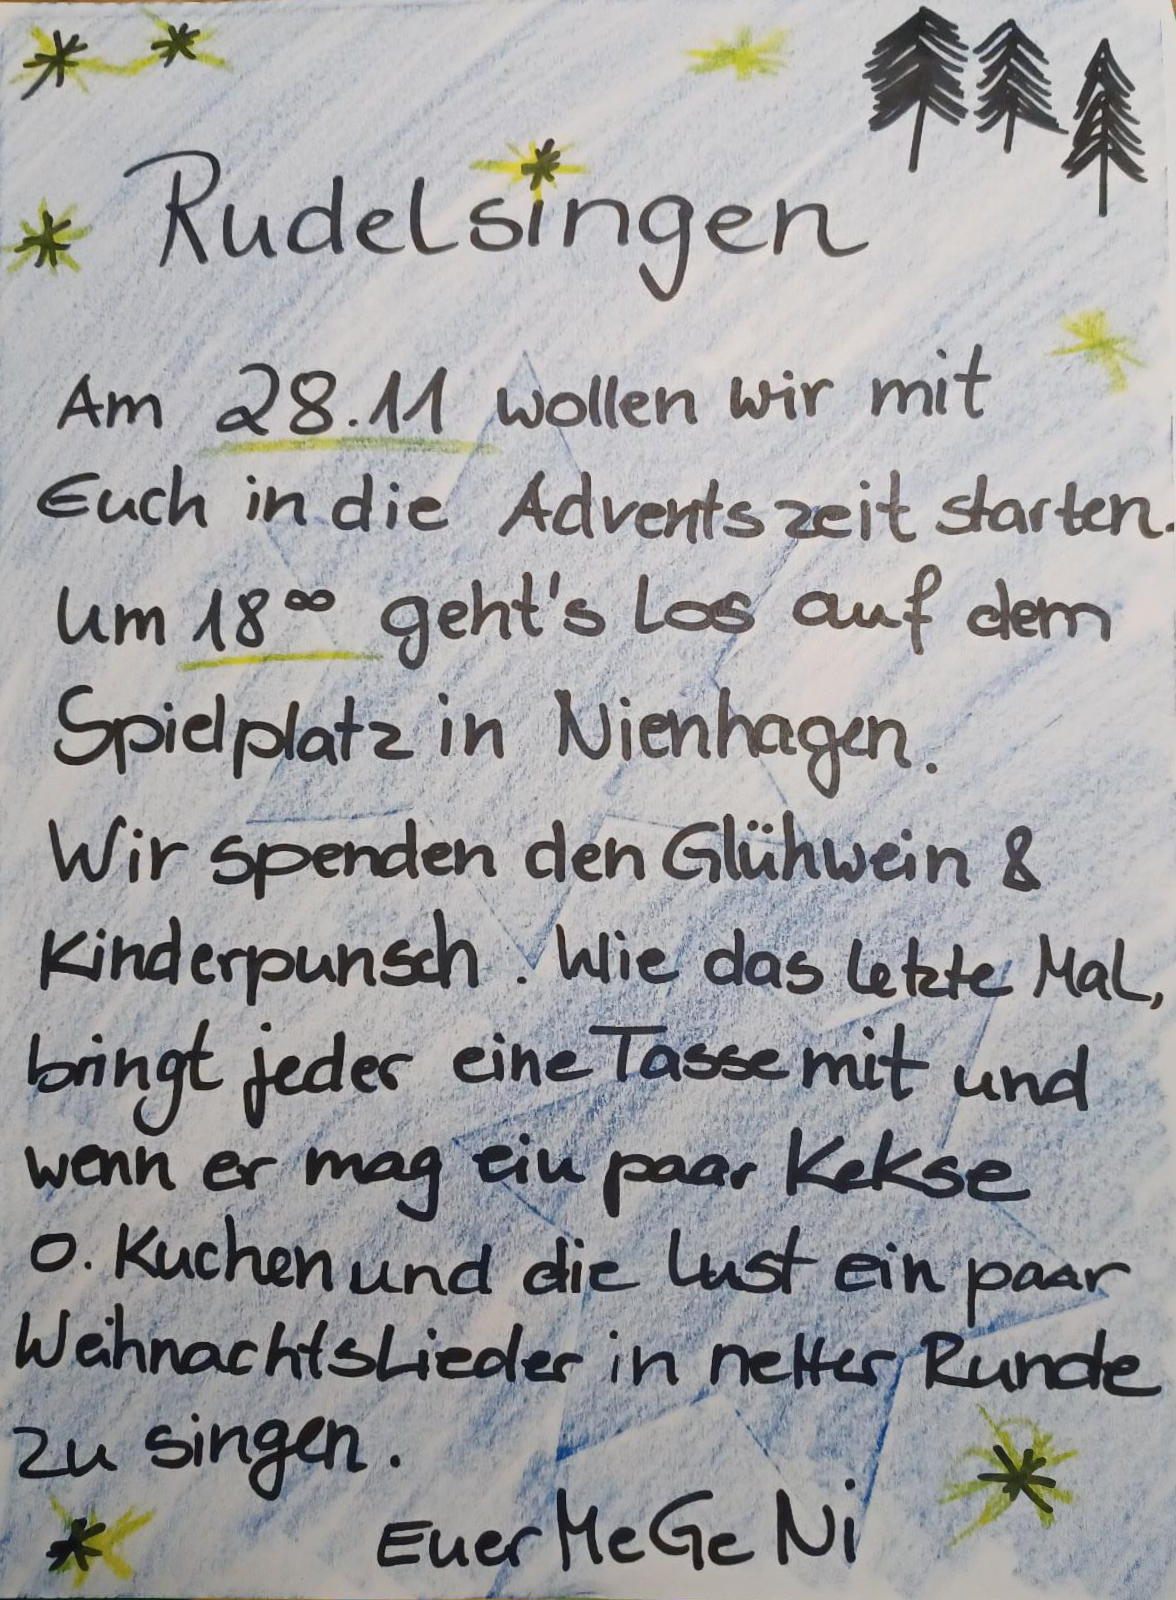 Rudelsingen
Am 28.11 wollen wir mit
Euch in die Adventszeit starten.
Um 18⁰⁰ geht's los auf dem
Spielplatz in Nienhagen.
Wir spenden den Glühwein &
Kinderpunsch. Wie das letzte Mal,
bringt jeder eine Tasse mit und
wenn er mag ein paar Kekse
o. Kuchen und die Lust ein paar
Weihnachtslieder in netter Runde
zu singen.
Euer MeGeNi